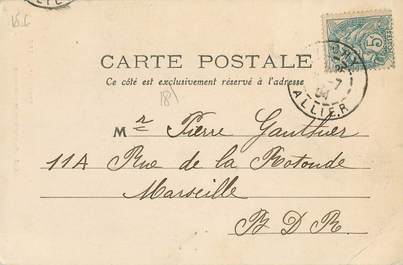 15.C
CARTE POSTALE
Ce côté est exclusivement réservé à l'adresse
18
Mr Pierre Gauthier
11A Rue de la Rotonde
Marseille
B D R
5
7
04
ALLIER